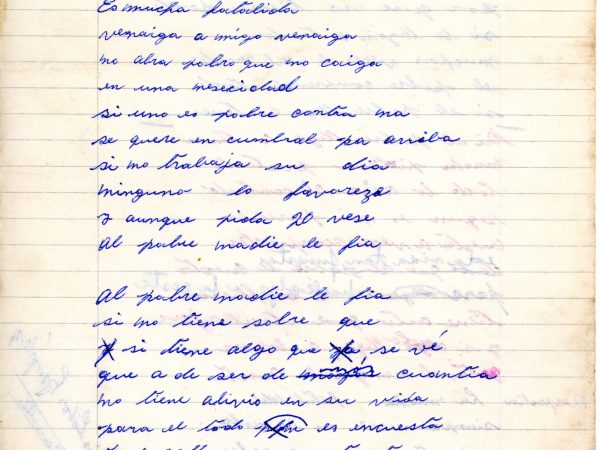 Es mucha fatalida
venaiga amigo venaiga
no abra pobro que no caiga
en una nesecidad
si uno es pobre contra ma
se quere en cumbral pa arriba
si no trabaja su dia
ninguno lo favoreze
y aunque pida 20 vese
Al pobre nadie le fia
Al pobre nadie le fia
si no tiene sobre que
y si tiene algo que ya se vé
que a de ser de cuantia
no tiene alivio en su vida
para el todo es encuesta